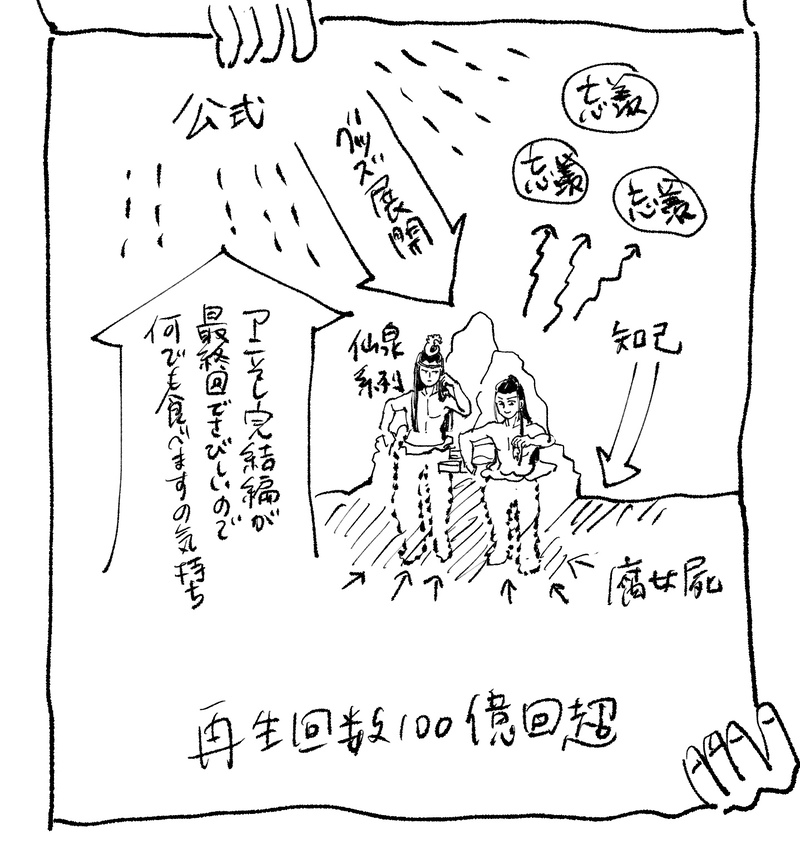 公式
グッズ展開
忘羨
忘羨
忘羨
仙泉
系列
知己
アニそし完結編が
最終回でさびしいので
何でも食べますの気持ち
腐女屍
再生回数100億回超